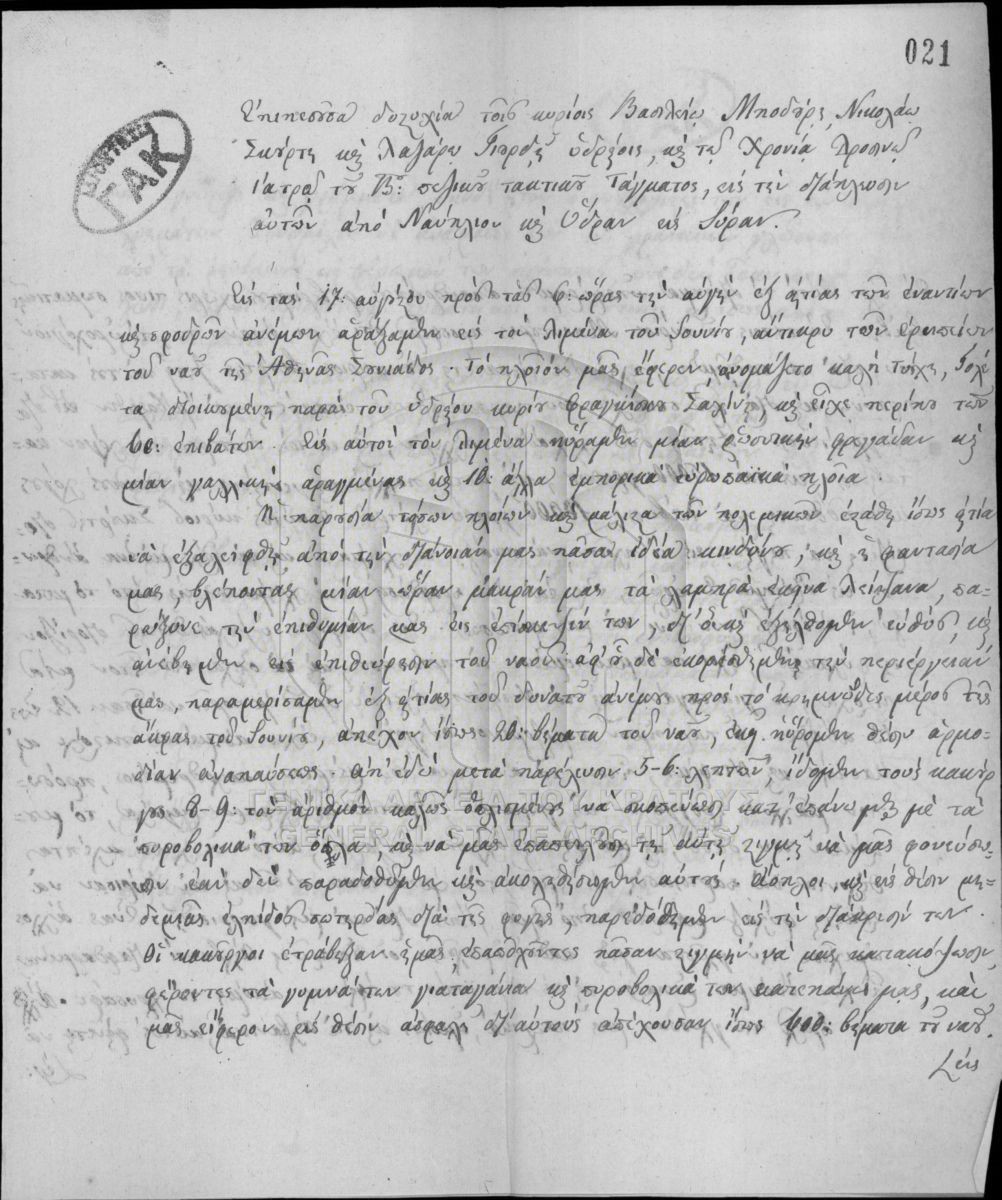 021
ΓΑΚ
Ἐπιπεσοῦσα δυςυχία τοῖς κυρίοις Βασιλείῳ Μποδούρῃ, Νικολάῳ
Σκούρτῃ καὶ Λαζάρῳ Γιορδῇ ὑδραίοις, καὶ τῷ Χρονίᾳ Δροσινῷ
ἰατρῷ τοῦ Β.ου πεζικοῦ τακτικοῦ Τάγματος, εἰς τὴν διάπλευσιν
αὐτῶν ἀπὸ Ναύπλιον καὶ Ὕδραν εἰς Σύραν.
Εἰς τὰς 17: αὐγούςου πρὸς τὰς 6: ὥρας τὴν αὐγὴν ἐξ αἰτίας τῶν ἐναντίων
καὶ σφοδρῶν ἀνέμων ἀράξαμεν εἰς τὸν λιμένα τοῦ Σουνίου, ἄντικρυ τῶν ἐρειπίων
τοῦ ναοῦ τῆς Ἀθηνᾶς Σουνιάδος. Τὸ πλοῖόν μας ἔφερεν, ὠνομάζετο καλὴ Τύχη, Γολέ
τα διοικουμένη παρὰ τοῦ ὑδραίου κυρίου Φραγκίσκου Σαχίνη, καὶ εἶχε περίπου τῶν
60: ἐπιβατῶν. Εἰς αὐτὸν τὸν λιμένα ηὕραμεν μίαν ῥωσσικὴν φρεγάδαν καὶ
μίαν γαλλικὴν ἀραγμένας καὶ 10: ἄλλα ἐμπορικὰ εὐρωπαϊκὰ πλοῖα.
Ἡ παρουσία τόσων πλοίων καὶ μάλιςα τῶν πολεμικῶν ἐςάθη ἴσως αἰτία
νὰ ἐξαλειφθῇ ἀπὸ τὴν διάνοιάν μας πᾶσα ἰδέα κινδύνου, καὶ ἡ φαντασία
μας, βλέποντας μίαν ὥραν μακράν μας τὰ λαμπρὰ ἐκεῖνα λείψανα, πα-
ρώξυνε τὴν ἐπιθυμίαν μας εἰς ἐπίσκεψίν των, δι' ὃ καὶ ἐξήλθομεν εὐθύς, καὶ
ἀνέβημεν εἰς ἐπιθεώρησιν τοῦ ναοῦ. ἀφ' οὗ δὲ ἐκορέσθημεν τὴν περιέργειάν
μας, παραμερίσαμεν ἐξ αἰτίας τοῦ δυνατοῦ ἀνέμου πρὸς τὸ κρημνῶδες μέρος τῆς
ἄκρας τοῦ Σουνίου, ἀπεῖχον ἴσως 20: βήματα τοῦ ναοῦ, ἐκεῖ ηὕρομεν θέσιν ἁρμο-
δίαν ἀναπαύσεως. ἀπ' ἐδῶ μετὰ παρέλευσιν 5-6: λεπτῶν, εἴδομεν τοὺς κακούρ
γους 8-9: τὸν ἀριθμὸν καλῶς ὁπλισμένους νὰ σκοπεύωσι κατ' ἐπάνω μας μὲ τὰ
πυροβολικά των ὅπλα, καὶ νὰ μᾶς ἐπαπειλῶσι τῇ αὐτῇ ςιγμῇ νὰ μᾶς φονεύσω-
σιν ἐὰν δὲν παραδοθῶμεν καὶ ἀκολουθήσωμεν αὐτούς. Ἄοπλοι, καὶ εἰς θέσιν μη-
δεμιᾶς ἐλπίδος σωτηρίας διὰ τῆς φυγῆς, παρεδόθημεν εἰς τὴν διάκρισίν των.
Οἱ κακοῦργοι ἐτράβηξαν ἡμᾶς, ἐπαπειλοῦντες πᾶσαν ςιγμὴν νὰ μᾶς κατακόψωσιν,
φέροντες τὰ γυμνά των γιαταγάνια καὶ πυροβολικά των κατεπάνω μας, καὶ
μᾶς ἔφερον εἰς θέσιν ἀσφαλῆ δι' αὐτοὺς ἀπέχουσαν ἴσως 600: βήματα τοῦ ναοῦ.
ΓΕΝΙΚΑ ΑΡΧΕΙΑ ΤΟΥ ΚΡΑΤΟΥΣ
GENERAL STATE ARCHIVES